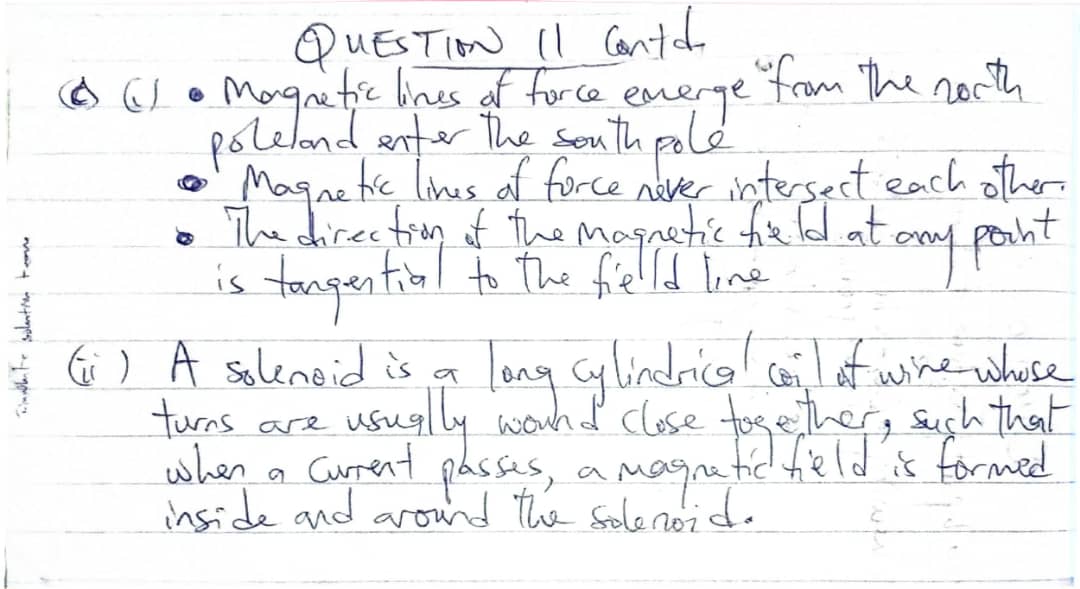 QUESTION 11 Contd
(c) (i) • Magnetic lines of force emerge from the north
pole and enter the south pole
• Magnetic lines of force never intersect each other.
• The direction of the magnetic field at any point
is tangential to the fielld line
(ii) A solenoid is a long cylindrical coil of wire whose
turns are usually wound close together, such that
when a current passes, a magnetic field is formed
inside and around the solenoid.
solution team